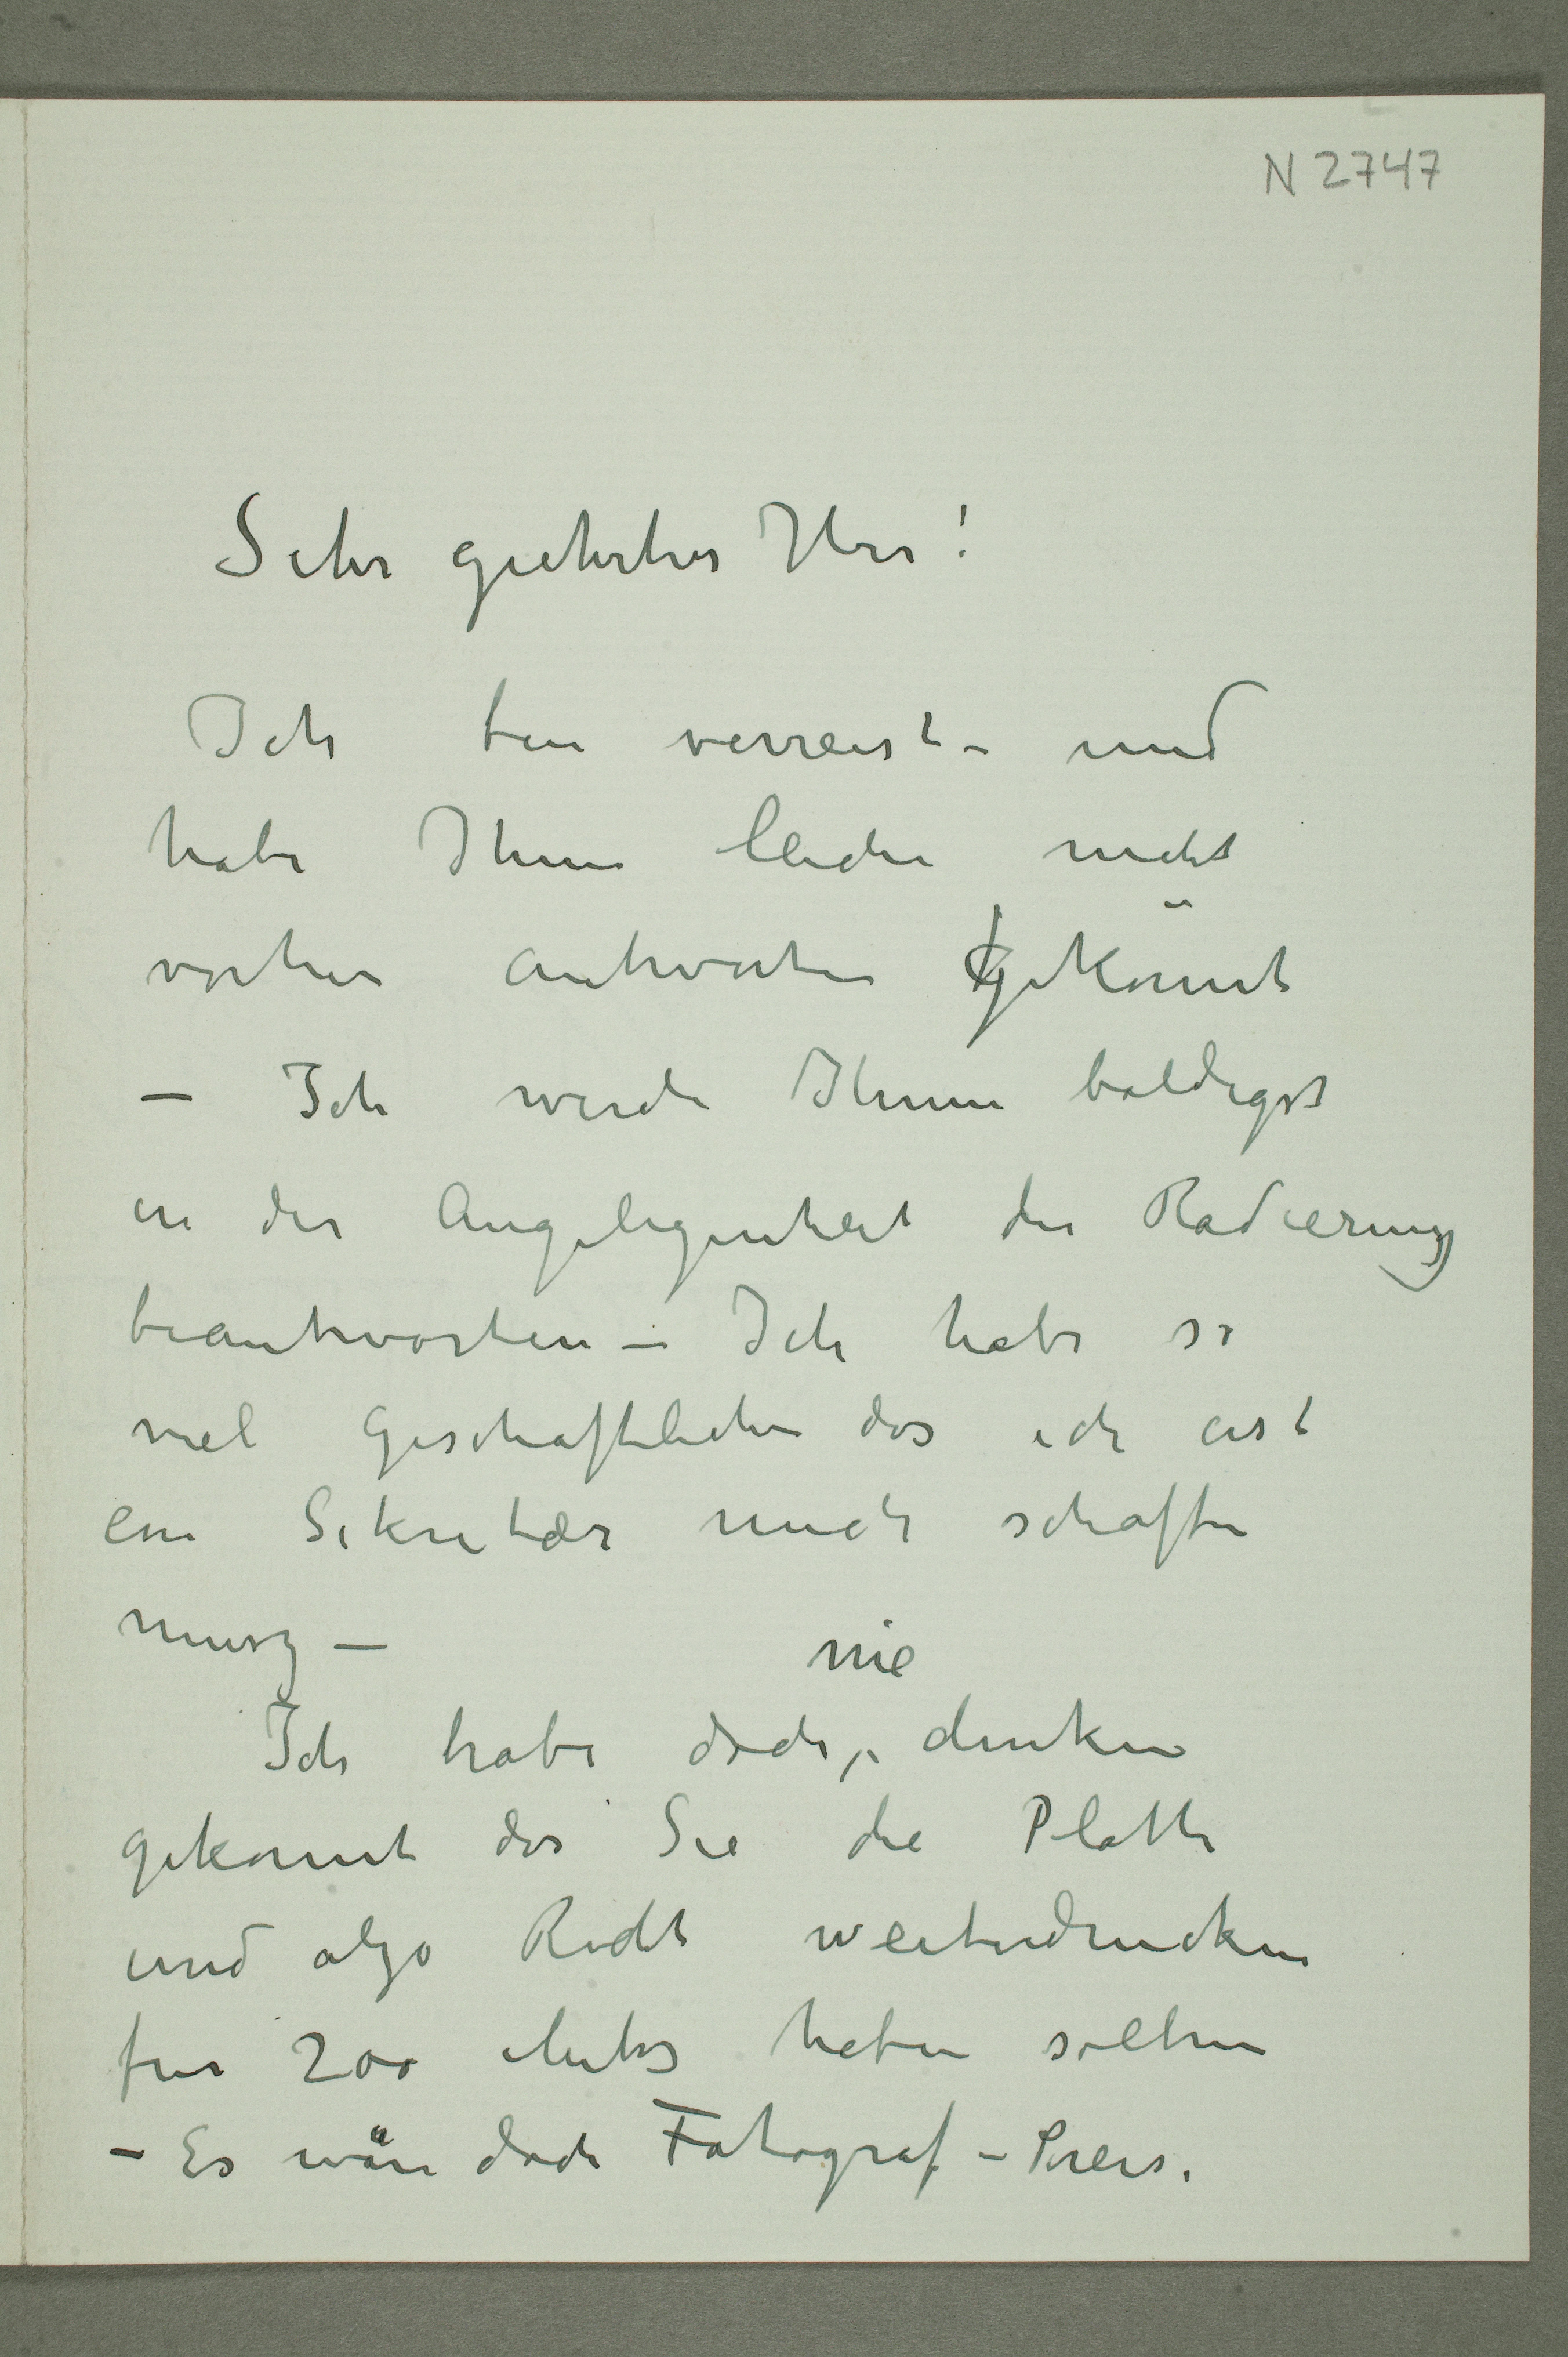 N 2747
Sehr geehrter Herr!
Ich bin verreist – und
habe Ihnen leider nicht
vorher antworten gekönnt
– Ich werde Ihnen baldigst
in der Angelegenheit der Radierung
beantworten – Ich habe so
viel Geschäftlichen das ich erst
ein Sekretær mich schaffen
musz –
nie
Ich habe doch, denken
gekonnt das Sie die Platte
und also Recht weiterdrucken
fur 200 Marks haben sollten
– Es wäre doch Fotograf-Preis.